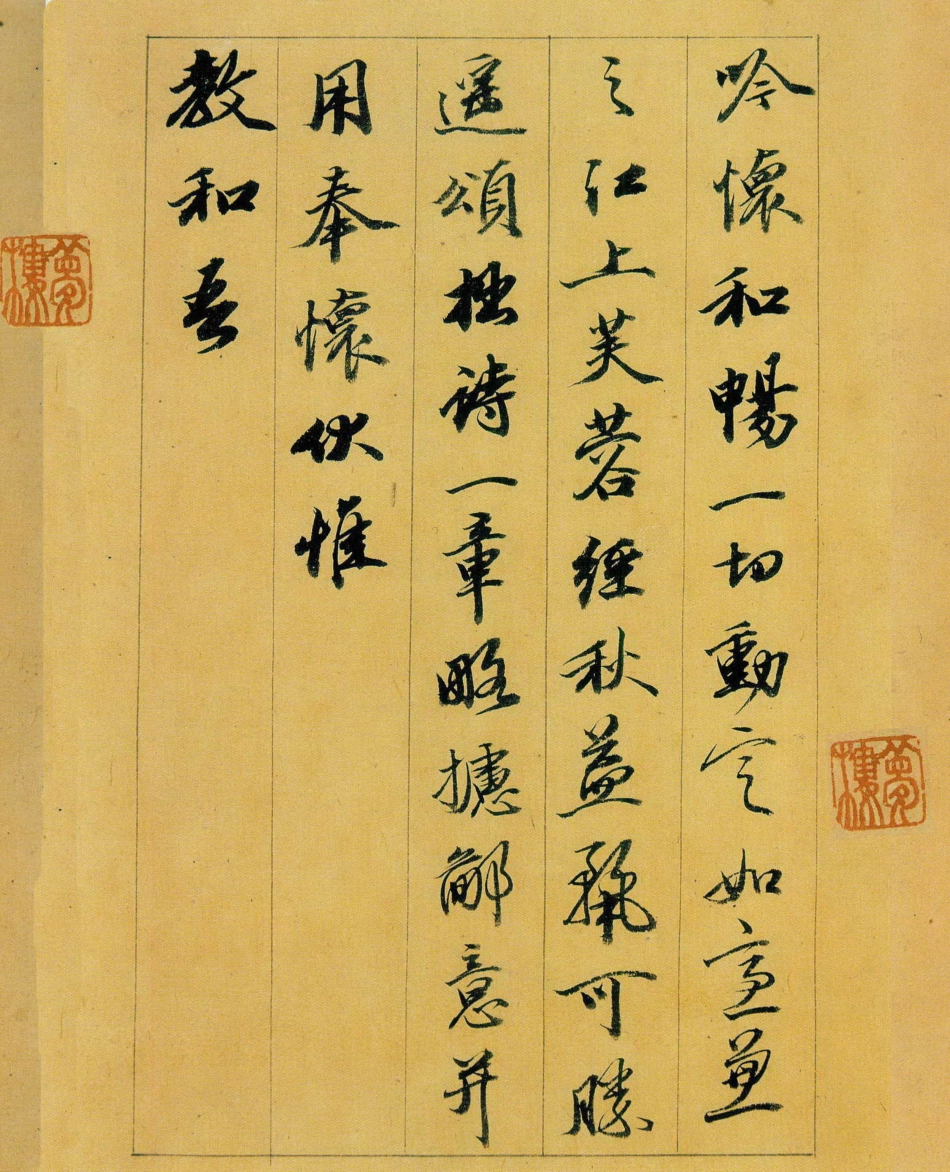 吟懷和暢一切動定如意兼
之江上芙蓉經秋益可勝
遥頌拙詩一章略攄鄙意并
用奉懷伏惟
教和吾
夢樓
夢樓